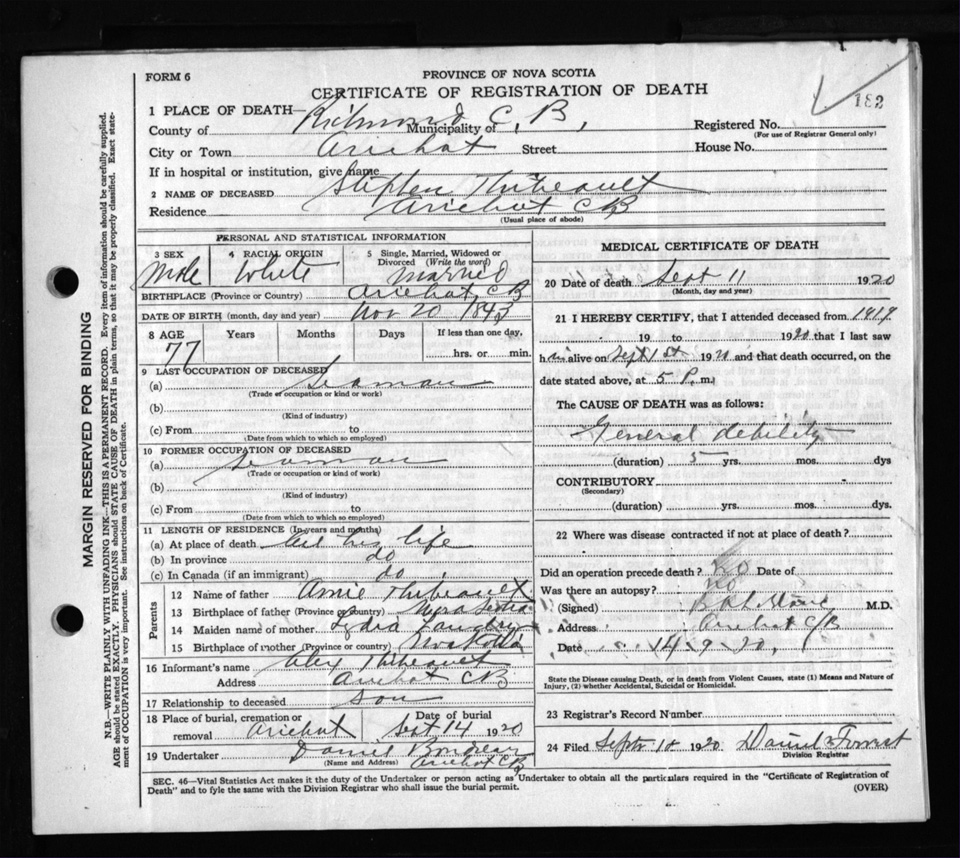 FORM 6
PROVINCE OF NOVA SCOTIA
CERTIFICATE OF REGISTRATION OF DEATH
182
1 PLACE OF DEATH—
County of Richmond Municipality of C, B,
Registered No.
(For use of Registrar General only)
City or Town Arichat Street
House No.
If in hospital or institution, give name
2 NAME OF DECEASED Stephen Thibeault
Residence Arichat CB
(Usual place of abode)
PERSONAL AND STATISTICAL INFORMATION
3 SEX Male
4 RACIAL ORIGIN White
5 Single, Married, Widowed or Divorced (Write the word) Married
BIRTHPLACE (Province or Country) Arichat, CB
DATE OF BIRTH (month, day and year) Nov 20 1843
8 AGE 77 Years Months Days If less than one day, hrs. or min.
9 LAST OCCUPATION OF DECEASED
(a) Seaman
(Trade or occupation or kind or work)
(b)
(Kind of industry)
(c) From to
(Date from which to which so employed)
10 FORMER OCCUPATION OF DECEASED
(a) Seaman
(Trade or occupation or kind of work)
(b)
(Kind of industry)
(c) From to
(Date from which to which so employed)
11 LENGTH OF RESIDENCE (In years and months)
(a) At place of death All his life
(b) In province do
(c) In Canada (if an immigrant) do
Parents
12 Name of father Thibeault
13 Birthplace of father (Province or country) Nova Scotia
14 Maiden name of mother Lydia
15 Birthplace of mother (Province or country) Nova Scotia
16 Informant's name Alex Thibeault
Address Arichat CB
17 Relationship to deceased son
18 Place of burial, cremation or removal Arichat
Date of burial Sept 14 1920
19 Undertaker Daniel
(Name and Address) Arichat CB
MEDICAL CERTIFICATE OF DEATH
20 Date of death Sept 11 1920
(Month, day and year)
21 I HEREBY CERTIFY, that I attended deceased from 1919
19 to 1920 that I last saw
him alive on Sept 1st 1920 and that death occurred, on the
date stated above, at 5 P. m.
The CAUSE OF DEATH was as follows:
General debility
(duration) 5 yrs. mos. dys
CONTRIBUTORY
(Secondary)
(duration) yrs. mos. dys.
22 Where was disease contracted if not at place of death?
Did an operation precede death? No Date of
Was there an autopsy? No
(Signed) M.D.
Address Arichat CB
Date 14-9-20,
State the Disease causing Death, or in death from Violent Causes, state (1) Means and Nature of
Injury, (2) whether Accidental, Suicidal or Homicidal.
23 Registrar's Record Number
24 Filed Sept 1920 Daniel Forrest
Division Registrar
SEC. 46—Vital Statistics Act makes it the duty of the Undertaker or person acting as Undertaker to obtain all the particulars required in the "Certificate of Registration of
Death" and to fyle the same with the Division Registrar who shall issue the burial permit.
(OVER)
MARGIN RESERVED FOR BINDING
N.B.—WRITE PLAINLY WITH UNFADING INK—THIS IS A PERMANENT RECORD. Every item of information should be carefully supplied.
AGE should be stated EXACTLY. PHYSICIANS should STATE CAUSE OF DEATH in plain terms, so that it may be properly classified. Exact statement
of OCCUPATION is very important. See instructions on back of Certificate.